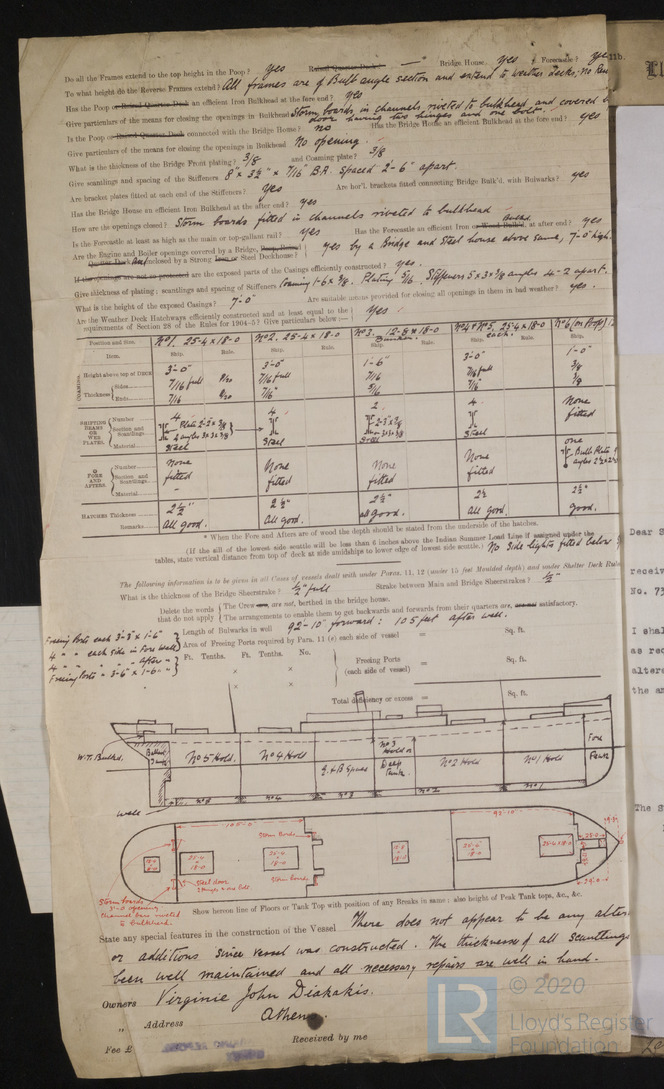 Do all the Frames extend to the top height in the Poop? yes Raised Quarter Deck? — " Bridge House. yes & Forecastle? ye 11b.
To what height do the Reverse Frames extend? All frames are of Bulb angle section and extend to weather decks; no Rev
Has the Poop or Raised Quarter Deck an efficient Iron Bulkhead at the fore end? yes
Give particulars of the means for closing the openings in Bulkhead Storm boards in channels riveted to bulkhead and covered b
door having two hinges and one bolt.
Is the Poop or Raised Quarter Deck connected with the Bridge House? no Has the Bridge House an efficient Bulkhead at the fore end? yes
Give particulars of the means for closing the openings in Bulkhead No opening.
What is the thickness of the Bridge Front plating? 3/8 and Coaming plate? 3/8
Give scantlings and spacing of the Stiffeners 8" x 3½" x 7/16" B.A. Spaced 2-6" apart.
Are bracket plates fitted at each end of the Stiffeners? yes Are hor'l. brackets fitted connecting Bridge Bulk'd. with Bulwarks? yes
Has the Bridge House an efficient Iron Bulkhead at the after end? yes
How are the openings closed? Storm boards fitted in channels riveted to bulkhead
Is the Forecastle at least as high as the main or top-gallant rail? yes Has the Forecastle an efficient Iron or Wood Bulk'd. at after end? yes
Bulkd.
Are the Engine and Boiler openings covered by a Bridge, Poop, Raised
Quarter Deck and enclosed by a Strong Iron or Steel Deckhouse? yes by a Bridge and Steel house above same, 7-0 high.
If the openings are not so protected are the exposed parts of the Casings efficiently constructed? yes.
Give thickness of plating; scantlings and spacing of Stiffeners Coaming 1-6 x 3/8. Plating 5/16. Stiffeners 5 x 3 x 3/8 angles 4-2 apart.
What is the height of the exposed Casings? 7-0" Are suitable means provided for closing all openings in them in bad weather? yes.
Are the Weather Deck Hatchways efficiently constructed and at least equal to the
requirements of Section 26 of the Rules for 1904-5? Give particulars below :— yes.
Position and size. No 1. 25-4 x 18-0 No 2. 25-4 x 18-0 No 3. 12-8 x 18-0 Bunker. No 4 & No 5. 25-4 x 18-0 each. No 6 (on Poop) 12
Item. Ship. Rule. Ship. Rule. Ship. Rule. Ship. Rule. Ship.
COAMING. Height above top of DECK 3'-0" 3'-0" 1-6" 3'-0" 1-0"
Thickness Sides 7/16 full 9/20 7/16 full 7/16 7/16 full 3/8
Ends 7/16 9/20 7/16" 5/16 7/16" 3/8
SHIFTING BEAMS OR WEB PLATES. Number 4 4 2 4 None
Section and Scantlings. Plate 2-2" x 3/8 fitted
4 angles 3 x 3 x 3/8
Material Steel Steel Steel Steel
FORE AND AFTERS. Number None None None None one
Section and Scantlings. fitted fitted fitted fitted Bulb Plate
Material -
HATCHES Thickness 2½" 2½" 2½" 2½ 2½"
Remarks all good. all good. all good. All good. Good.
* When the Fore and Afters are of wood the depth should be stated from the underside of the hatches.
(If the sill of the lowest side scuttle will be less than 6 inches above the Indian Summer Load Line if assigned under the
tables, state vertical distance from top of deck at side amidships to lower edge of lowest side scuttle.) No side lights fitted below
The following information is to be given in all Cases of vessels dealt with under Paras. 11, 12 (under 15 feet Moulded depth) and under Shelter Deck Rule
What is the thickness of the Bridge Sheerstrake? ½" full Strake between Main and Bridge Sheerstrakes? ½"
Delete the words that do not apply
The Crew are, are not, berthed in the bridge house.
The arrangements to enable them to get backwards and forwards from their quarters are, are not satisfactory.
Length of Bulwarks in well 92-10" forward: 105 feet after well.
Freeing Ports each 3-3" x 1-6"
4 " " each side in Fore well
4 " " " " after "
Freeing Ports " 3-6" x 1-6" "
Area of Freeing Ports required by Para. 11 (e) each side of vessel = Sq. ft.
Ft. Tenths. Ft. Tenths. No.
× × Freeing Ports (each side of vessel) = Sq. ft.
× ×
Total deficiency or excess = Sq. ft.
W.T. Bulkd.
Ballast Tank
No 5 Hold.
No 4 Hold
E & B Space
No 3 Hold or Deep Tank.
No 2 Hold
No 1 Hold
Fore Peak
No 5 No 4 No 3 No 2 No 1
Well
105-0"
92-10"
Storm Boards
25-4 x 18-0
25-4 x 18-0
12-8 x 18-0
25-4 x 18-0
25-4 x 18-0
Steel door
2 Hinges & one Bolt
Storm boards
Storm boards
3'-0 opening
Channel bars riveted
to bulkhead.
Show hereon line of Floors or Tank Top with position of any Breaks in same; also height of Peak Tank tops, &c., &c.
State any special features in the construction of the Vessel There does not appear to be any alter
or additions since vessel was constructed. The thickness of all scantlings
been well maintained and all necessary repairs are well in hand.
Owners Virginie John Diakakis.
" Address Athens.
Fee £ Received by me
Dear S
receiv
No. 73
I shal
as rec
altera
the am
The S
© 2020
LR
Lloyd's Register
Foundation